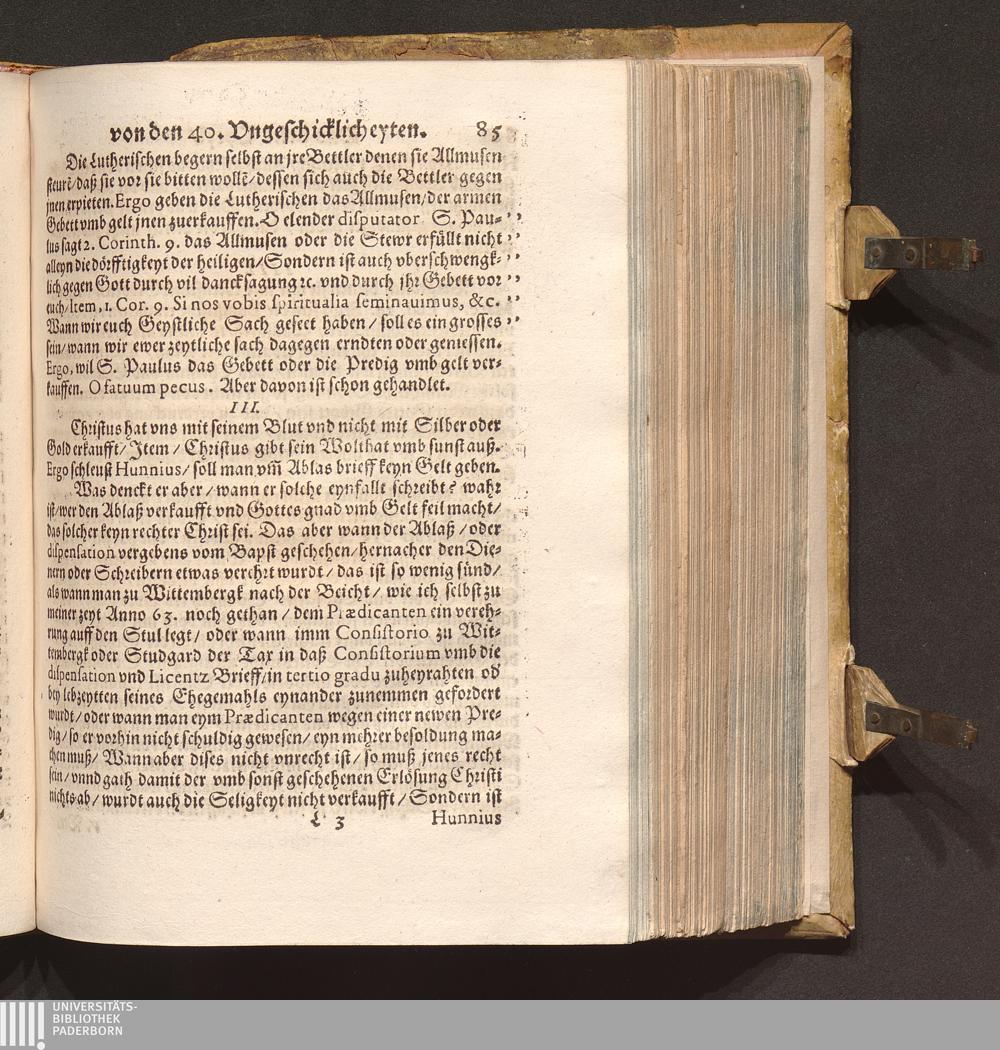 von den 40. Vngeschicklicheyten. 85
Die Lutherischen begern selbst an jre Bettler denen sie Allmusen
steurē/daß sie vor sie bitten wollē/dessen sich auch die Bettler gegen
jnen erpieten. Ergo geben die Lutherischen das Allmusen/der armen
Gebett vmb gelt jnen zuerkauffen. O elender disputator S. Pau-
lus sagt 2. Corinth. 9. das Allmusen oder die Stewr erfüllt nicht
alleyn die dörfftigkeyt der heiligen/Sondern ist auch vberschwengk-
lich gegen Gott durch vil dancksagung ꝛc. vnd durch jhr Gebett vor
euch/Item, 1. Cor. 9. Si nos vobis spiritualia seminauimus, &c.
Wann wir euch Geystliche Sach geseet haben / soll es ein grosses
sein/wann wir ewer zeytliche sach dagegen erndten oder geniessen.
Ergo, wil S. Paulus das Gebett oder die Predig vmb gelt ver-
kauffen. O fatuum pecus. Aber davon ist schon gehandlet.
III.
Christus hat vns mit seinem Blut vnd nicht mit Silber oder
Gold erkaufft/ Item / Christus gibt sein Wolthat vmb sunst auß.
Ergo schleust Hunnius/ soll man vm̃ Ablas brieff keyn Gelt geben.
Was denckt er aber / wann er solche eynfallt schreibt? wahr
ist/wer den Ablaß verkaufft vnd Gottes gnad vmb Gelt feil macht/
das solcher keyn rechter Christ sei. Das aber wann der Ablaß / oder
dispensation vergebens vom Bapst geschehen/ hernacher den Die-
nern oder Schreibern etwas verehrt wurdt / das ist so wenig sünd/
als wann man zu Wittembergk nach der Beicht / wie ich selbst zu
meiner zeyt Anno 63. noch gethan / dem Prædicanten ein vereh-
rung auff den Stul legt / oder wann imm Consistorio zu Wit-
tembergk oder Studgard der Tax in daß Consistorium vmb die
dispensation vnd Licentz Brieff/in tertio gradu zuheyrahten od'
bey lebzeytten seines Ehegemahls eynander zunemmen gefordert
wurdt / oder wann man eym Prædicanten wegen einer newen Pre-
dig / so er vorhin nicht schuldig gewesen / eyn mehrer besoldung ma-
chen muß/ Wann aber dises nicht vnrecht ist / so muß jenes recht
sein / vnnd gath damit der vmb sonst geschehenen Erlösung Christi
nichts ab / wurdt auch die Seligkeyt nicht verkaufft / Sondern ist
L 3 Hunnius
UNIVERSITÄTS-
BIBLIOTHEK
PADERBORN